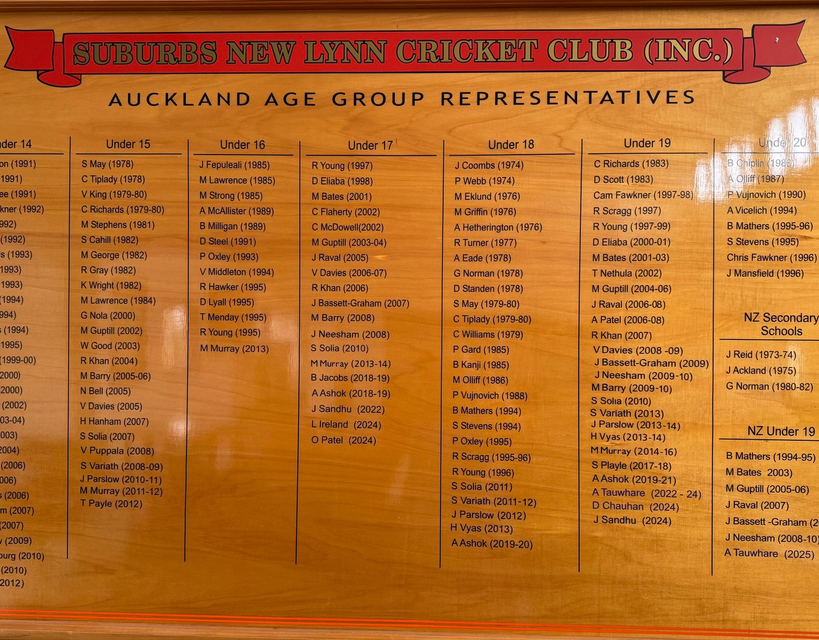 SUBURBS NEW LYNN CRICKET CLUB (INC.)
AUCKLAND AGE GROUP REPRESENTATIVES
14
(1991)
1991)
(1991)
(1992)
992)
(1992)
(1993)
1993)
1993)
994)
(1994)
1995)
(1999-00)
2000)
2000)
(2002)
03-04)
003)
2004)
(2006)
006)
(2006)
(2007)
(2007)
(2009)
(2010)
(2010)
2012)
Under 15
S May (1978)
C Tiplady (1978)
V King (1979-80)
C Richards (1979-80)
M Stephens (1981)
S Cahill (1982)
M George (1982)
R Gray (1982)
K Wright (1982)
M Lawrence (1984)
G Nola (2000)
M Guptill (2002)
W Good (2003)
R Khan (2004)
M Barry (2005-06)
N Bell (2005)
V Davies (2005)
H Hanham (2007)
S Solia (2007)
V Puppala (2008)
S Variath (2008-09)
J Parslow (2010-11)
M Murray (2011-12)
T Payle (2012)
Under 16
J Fepuleali (1985)
M Lawrence (1985)
M Strong (1985)
A McAllister (1989)
B Milligan (1989)
D Steel (1991)
P Oxley (1993)
V Middleton (1994)
R Hawker (1995)
D Lyall (1995)
T Menday (1995)
R Young (1995)
M Murray (2013)
Under 17
R Young (1997)
D Eliaba (1998)
M Bates (2001)
C Flaherty (2002)
C McDowell(2002)
M Guptill (2003-04)
J Raval (2005)
V Davies (2006-07)
R Khan (2006)
J Bassett-Graham (2007)
M Barry (2008)
J Neesham (2008)
S Solia (2010)
M Murray (2013-14)
B Jacobs (2018-19)
A Ashok (2018-19)
J Sandhu (2022)
L Ireland (2024)
O Patel (2024)
Under 18
J Coombs (1974)
P Webb (1974)
M Eklund (1976)
M Griffin (1976)
A Hetherington (1976)
R Turner (1977)
A Eade (1978)
G Norman (1978)
D Standen (1978)
S May (1979-80)
C Tiplady (1979-80)
C Williams (1979)
P Gard (1985)
B Kanji (1985)
M Olliff (1986)
P Vujnovich (1988)
B Mathers (1994)
S Stevens (1994)
P Oxley (1995)
R Scragg (1995-96)
R Young (1996)
S Solia (2011)
S Variath (2011-12)
J Parslow (2012)
H Vyas (2013)
A Ashok (2019-20)
Under 19
C Richards (1983)
D Scott (1983)
Cam Fawkner (1997-98)
R Scragg (1997)
R Young (1997-99)
D Eliaba (2000-01)
M Bates (2001-03)
T Nethula (2002)
M Guptill (2004-06)
J Raval (2006-08)
A Patel (2006-08)
R Khan (2007)
V Davies (2008 -09)
J Bassett-Graham (2009)
J Neesham (2009-10)
M Barry (2009-10)
S Solia (2010)
S Variath (2013)
J Parslow (2013-14)
H Vyas (2013-14)
M Murray (2014-16)
S Playle (2017-18)
A Ashok (2019-21)
A Tauwhare (2022 - 24)
D Chauhan (2024)
J Sandhu (2024)
Under 20
B Chiplin (1986)
A Olliff (1987)
P Vujnovich (1990)
A Vicelich (1994)
B Mathers (1995-96)
S Stevens (1995)
Chris Fawkner (1996)
J Mansfield (1996)
NZ Secondary
Schools
J Reid (1973-74)
J Ackland (1975)
G Norman (1980-82)
NZ Under 19
B Mathers (1994-95)
M Bates 2003)
M Guptill (2005-06)
J Raval (2007)
J Bassett -Graham (2
J Neesham (2008-10)
A Tauwhare (2025)